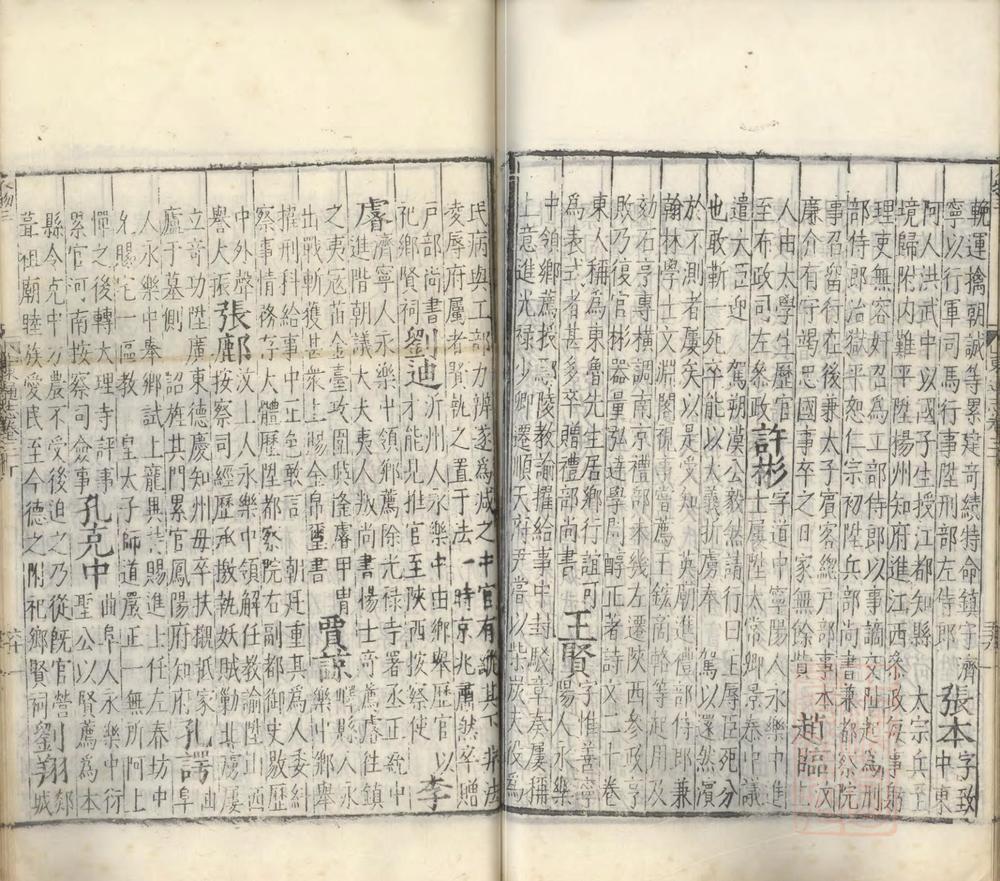 輓運擒朝誠等累建奇績特命鎮守濟
寧以行軍司馬行事陞刑部左侍郎張本字致中東
阿人洪武中以國子生授江都知縣太宗兵至
境歸附内難平陞揚州知府進江西叅政每事躬
理吏無容奸召為工部侍郎以事謫交阯起為刑
部侍郎治獄平恕仁宗初陞兵部尚書兼都察院
事召留行在後兼太子賓客總戶部事本剛又
廉介有守竭思國事卒之日家無餘貲趙臨
人由太學生歷官中外永樂中進
至布政司左叅政許彬字道中寧陽人永樂中進士屢陞太常卿景泰中議
遣大臣迎駕朔漠公毅然請行曰主辱臣死分
也敢斬一死乎以大義折虜奉駕以還然瀕
於不測者屢矣以是受知英廟進禮部侍郎兼
翰林學士文淵閣視事嘗薦王鋐高幹等起用及
劾石亨專橫調南京禮部未幾左遷陝西叅政亨
敗乃復官彬器量弘達學問醇正著詩文二十卷
東人稱為東魯先生居鄉行誼可
為表式者甚多卒贈禮部尚書王賢字惟善寧陽人永樂
中領鄉薦授鄢陵教諭擢給事中封駁章奏屢稱
上意進光祿少卿遷順天府尹嘗以柴炭夫役為
民病與工部力辨遂為減之中官有縱其下非法
凌辱府屬者賢執之置于法一時京兆肅然卒贈
戶部尚書劉迪沂州人永樂中由鄉舉歷官以
祀鄉賢祠才能見推官至陝西按察使李
濬濟寧人永樂中領鄉薦除光祿寺署丞正統中
進階朝議大夫夷人叛尚書楊士奇薦濬往鎮
之夷冦苗金臺政圍與濬甲冑
出戰斬獲甚衆上賜金帛璽書賈諒嶧縣人永樂中鄉舉
擢刑科給事中正色敢言朝廷重其為人委糾
察事情務存大體歷陞都察院右副都御史敭歷
中外聲譽大振張鄜汶上人永樂中領解任教諭陞山西按察司經歷承檄執妖賊勦其虜屢
立奇功陞廣東德慶知州母卒扶櫬抵家
廬于墓側詔旌其門累官鳳陽府知府孔諤曲阜
人永樂中舉鄉試上龍興詩賜進士任左春坊中
允賜宅一區教皇太子師道嚴正一無所阿上
憚之後轉大理寺評事孔克中曲阜人永樂中衍
累官河南按察司僉事聖公以賢薦為本
縣令克中力農不受後迫之乃從既官營
葺祖廟睦族愛民至今德之附祀鄉賢祠劉翔郯城